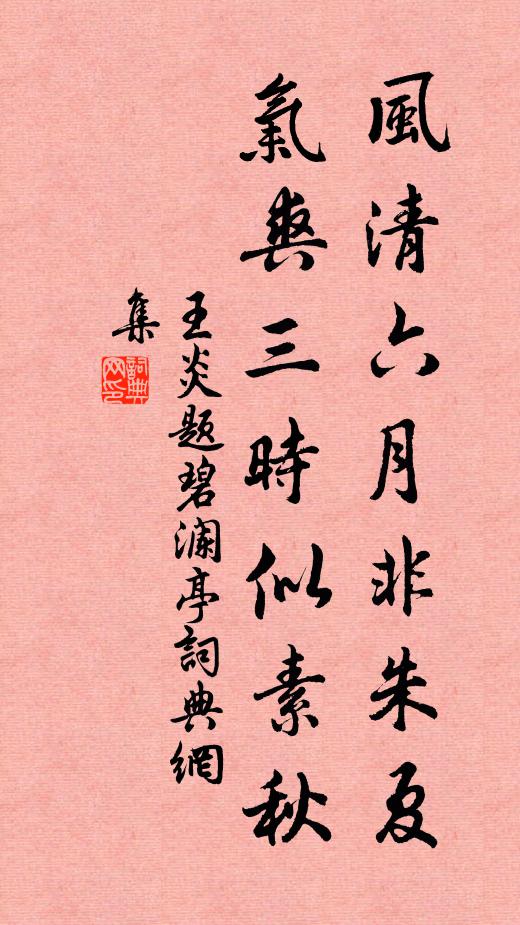 風清六月非朱夏
氣爽三時似素秋
王炎题碧瀾亭詞典網
集
詞典
网印